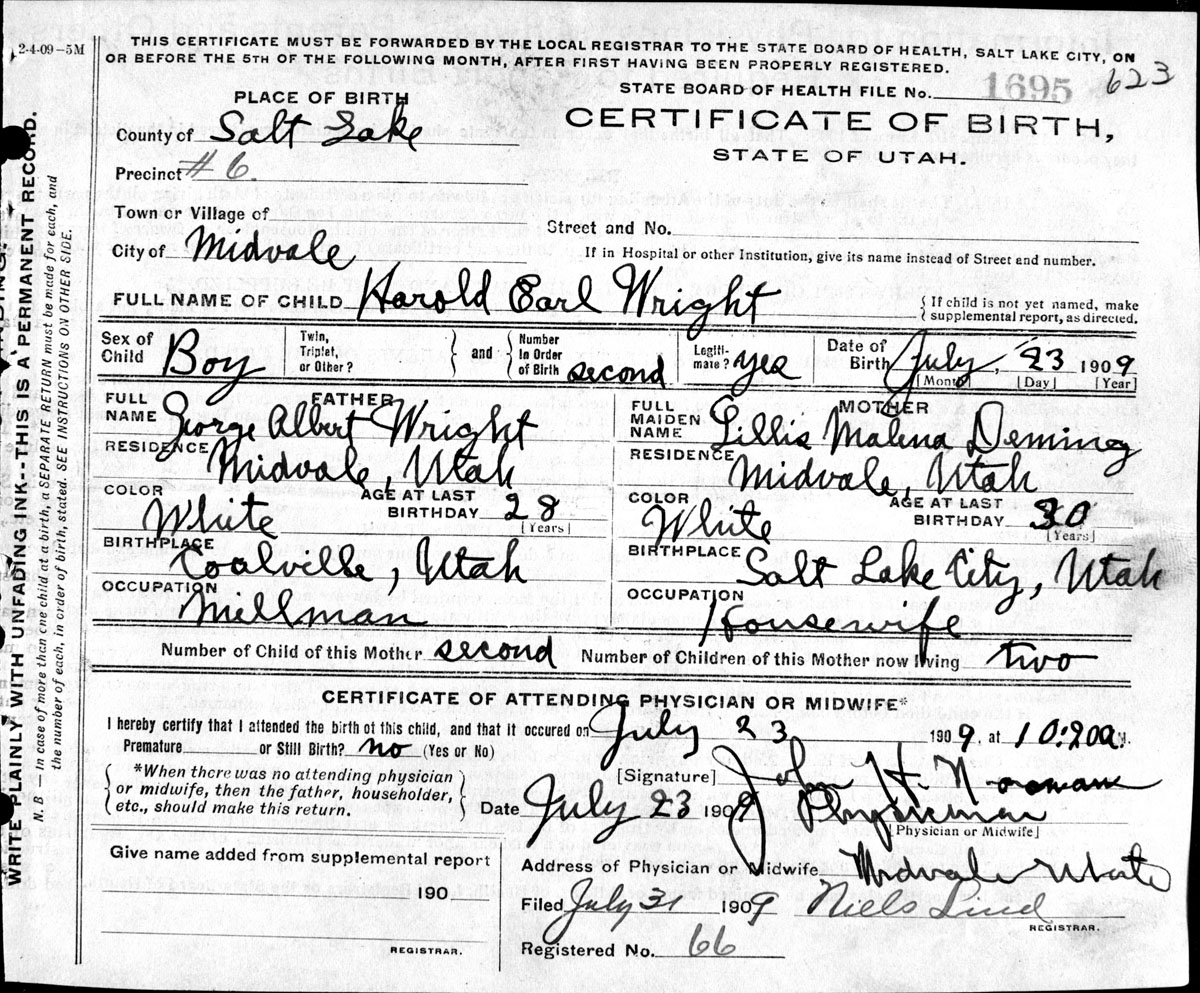 2-4-09-5M
THIS CERTIFICATE MUST BE FORWARDED BY THE LOCAL REGISTRAR TO THE STATE BOARD OF HEALTH, SALT LAKE CITY, ON
OR BEFORE THE 5TH OF THE FOLLOWING MONTH, AFTER FIRST HAVING BEEN PROPERLY REGISTERED.
STATE BOARD OF HEALTH FILE No. 1695 623
PLACE OF BIRTH
CERTIFICATE OF BIRTH,
STATE OF UTAH.
County of Salt Lake
Precinct #6
Town or Village of
Street and No.
City of Midvale
If in Hospital or other Institution, give its name instead of Street and number.
FULL NAME OF CHILD Harold Earl Wright
{ If child is not yet named, make
{ supplemental report, as directed.
Sex of Child Boy
Twin, Triplet, or Other?
and
Number in Order of Birth second
Legitimate? yes
Date of Birth July, 23 1909
[Month] [Day] [Year]
FATHER
FULL NAME George Albert Wright
RESIDENCE Midvale, Utah
COLOR White
AGE AT LAST BIRTHDAY 28
[Years]
BIRTHPLACE Coalville, Utah
OCCUPATION Millman
MOTHER
FULL MAIDEN NAME Lillis Malena Deming
RESIDENCE Midvale, Utah
COLOR White
AGE AT LAST BIRTHDAY 30
[Years]
BIRTHPLACE Salt Lake City, Utah
OCCUPATION Housewife
Number of Child of this Mother second
Number of Children of this Mother now living two
CERTIFICATE OF ATTENDING PHYSICIAN OR MIDWIFE*
I hereby certify that I attended the birth of this child, and that it occured on July 23 1909, at 10:20 a M.
Premature or Still Birth? no (Yes or No)
*When there was no attending physician
or midwife, then the father, householder,
etc., should make this return.
[Signature] John H. Norman
Date July 23 1909
Physician
[Physician or Midwife]
Give name added from supplemental report
190
REGISTRAR.
Address of Physician or Midwife Midvale Utah
Filed July 31 1909 Niels Lind
REGISTRAR.
Registered No. 66
WRITE PLAINLY WITH UNFADING INK--THIS IS A PERMANENT RECORD.
N. B — In case of more than one child at a birth, a SEPARATE RETURN must be made for each, and
the number of each, in order of birth, stated. SEE INSTRUCTIONS ON OTHER SIDE.